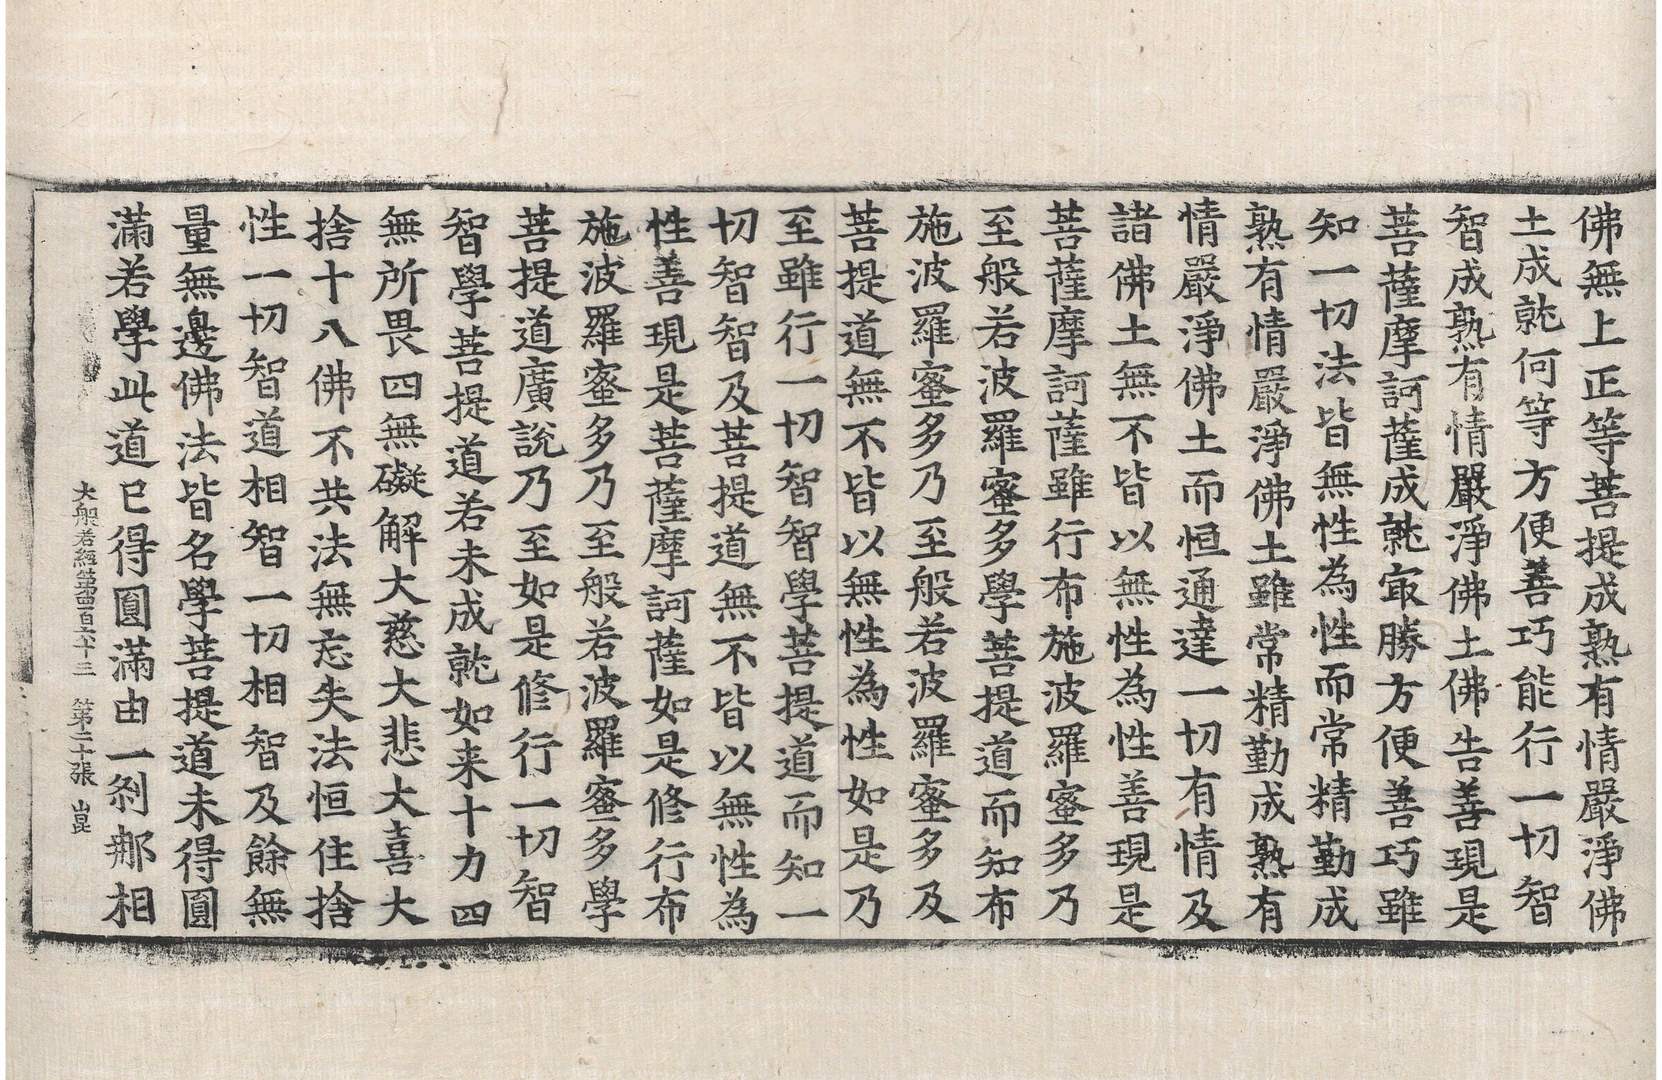 佛無上正等菩提成熟有情嚴淨佛
土成就何等方便善巧能行一切智
智成熟有情嚴淨佛土佛告善現是
菩薩摩訶薩成就㝡勝方便善巧雖
知一切法皆無性為性而常精勤成
熟有情嚴淨佛土雖常精勤成熟有
情嚴淨佛土而恒通達一切有情及
諸佛土無不皆以無性為性善現是
菩薩摩訶薩雖行布施波羅蜜多乃
至般若波羅蜜多學菩提道而知布
施波羅蜜多乃至般若波羅蜜多及
菩提道無不皆以無性為性如是乃
至雖行一切智智學菩提道而知一
切智智及菩提道無不皆以無性為
性善現是菩薩摩訶薩如是修行布
施波羅蜜多乃至般若波羅蜜多學
菩提道廣說乃至如是修行一切智
智學菩提道若未成就如来十力四
無所畏四無礙解大慈大悲大喜大
捨十八佛不共法無忘失法恒住捨
性一切智道相智一切相智及餘無
量無邊佛法皆名學菩提道未得圓
滿若學此道已得圓滿由一剎那相
大般若經第四百六十三　第二十張　崑